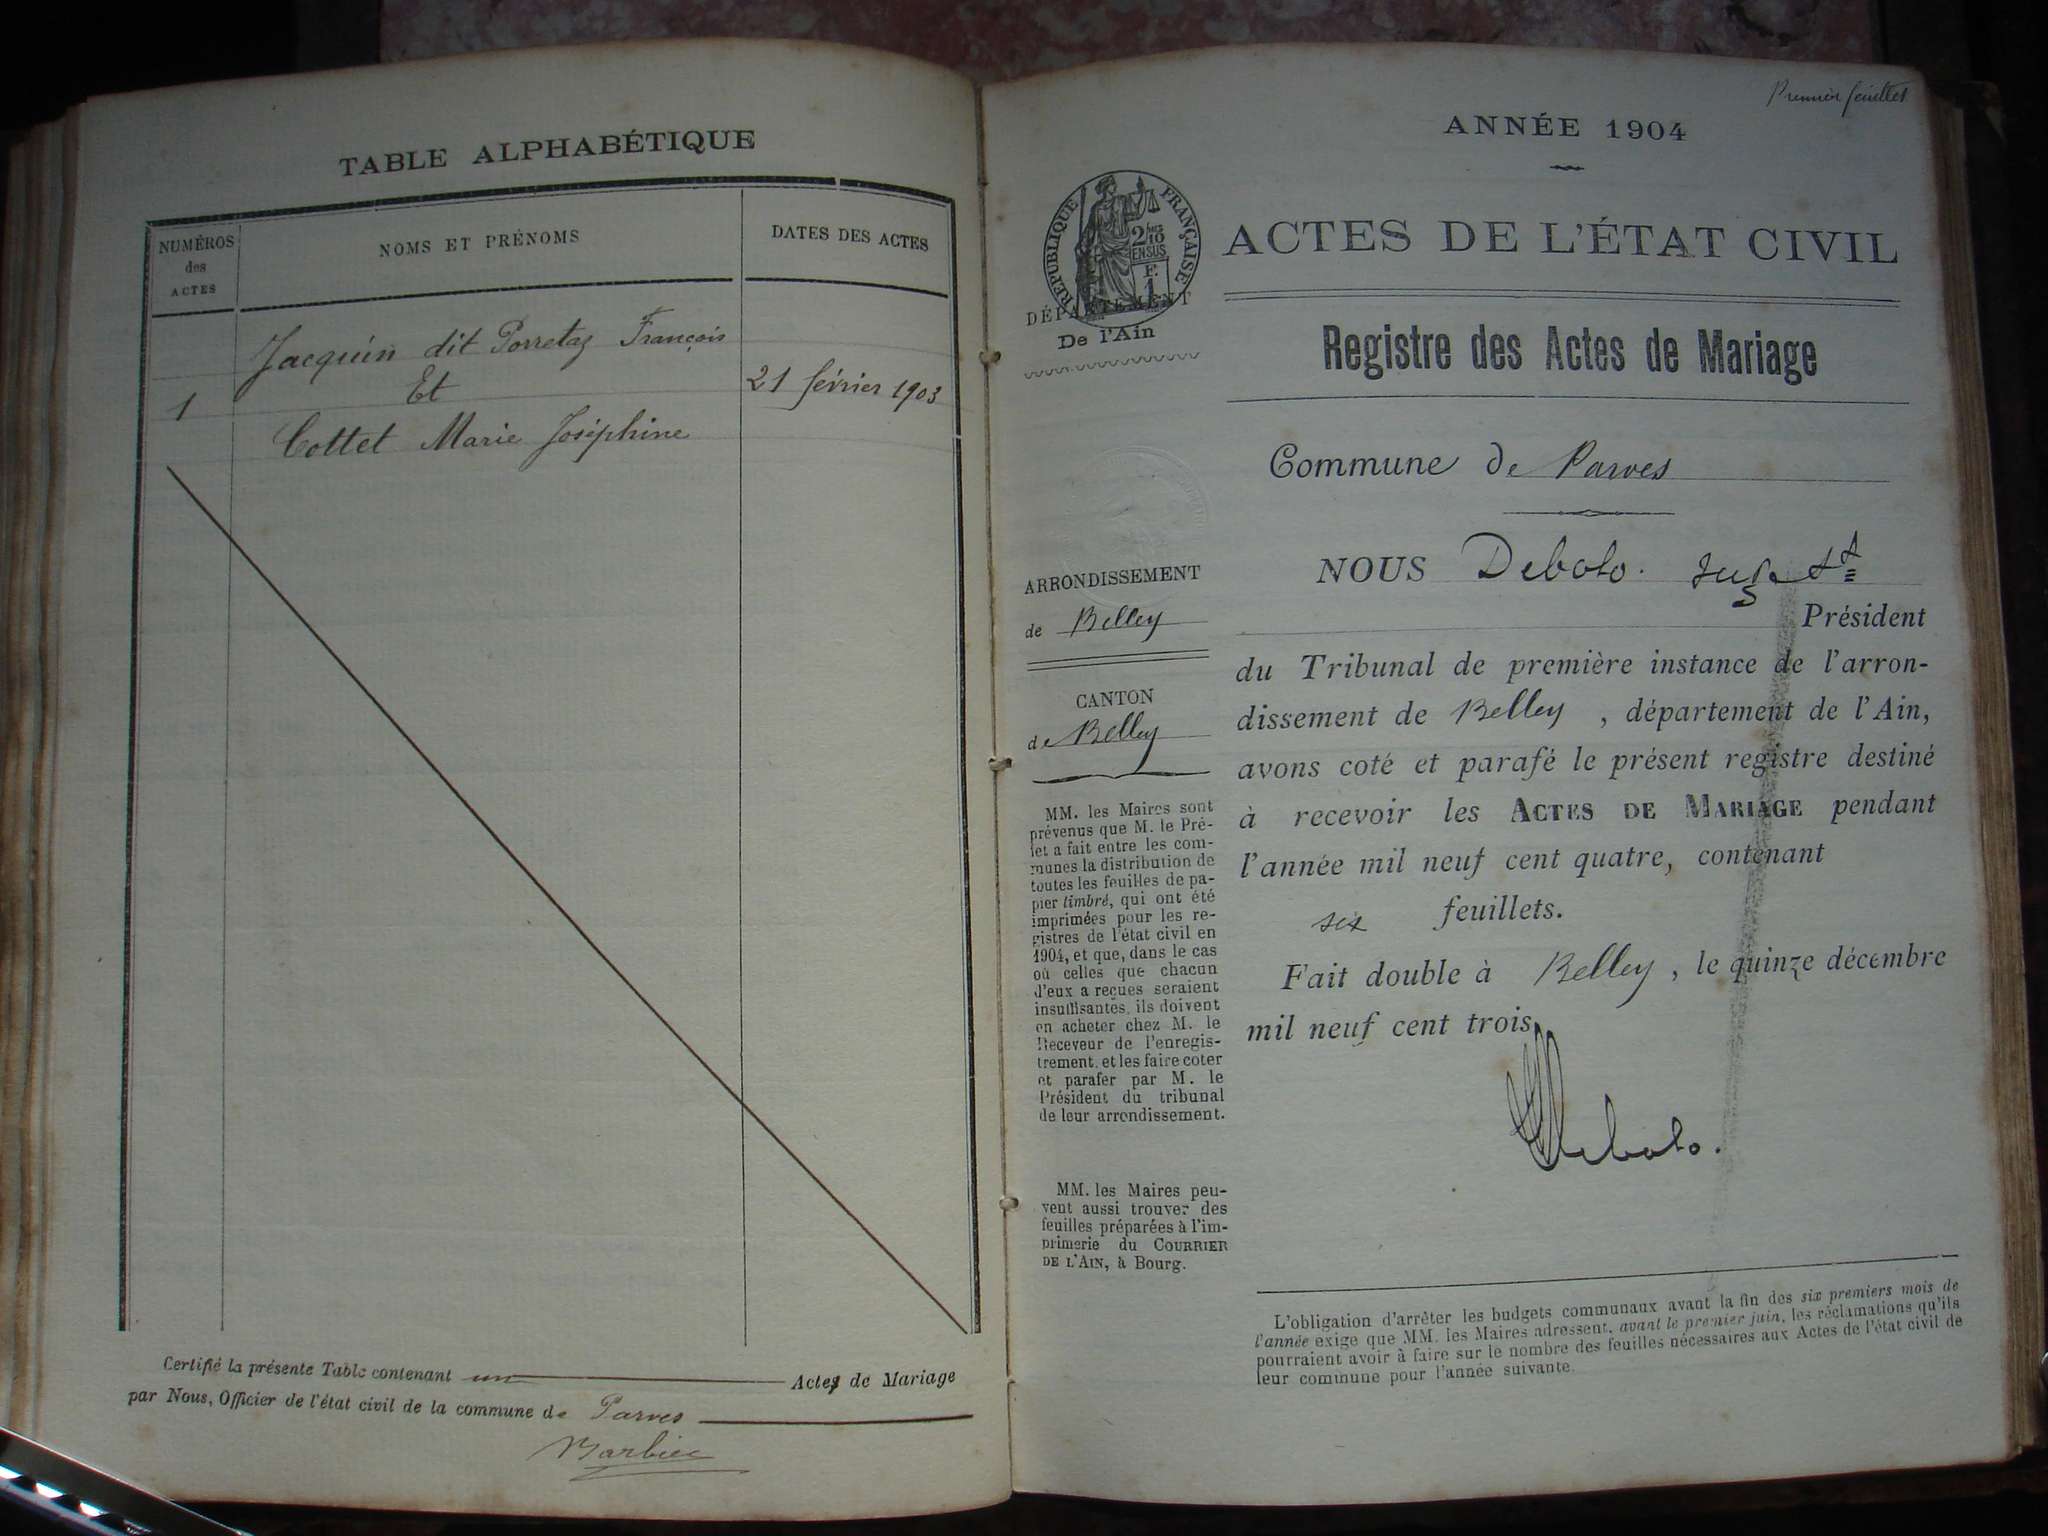 TABLE ALPHABÉTIQUE
NUMÉROS
des
ACTES
NOMS ET PRÉNOMS
DATES DES ACTES
Jacquin dit Porretaz François
Et
1
21 février 1903
Cottet Marie Joséphine
Certifié la présente Table contenant un Actes de Mariage
par Nous, Officier de l'état civil de la commune de Parves
Barbier
Premier feuillet
ANNÉE 1904
RÉPUBLIQUE FRANÇAISE
2/10
EN SUS
F.
1
DÉPARTEMENT
De l'Ain
ACTES DE L'ÉTAT CIVIL
Registre des Actes de Mariage
Commune de Parves
ARRONDISSEMENT
de Belley
CANTON
de Belley
MM. les Maires sont
prévenus que M. le Pré-
fet a fait entre les com-
munes la distribution de
toutes les feuilles de pa-
pier timbré, qui ont été
imprimées pour les re-
gistres de l'état civil en
1904, et que, dans le cas
où celles que chacun
d'eux a reçues seraient
insuffisantes, ils doivent
en acheter chez M. le
Receveur de l'enregis-
trement, et les faire coter
et parafer par M. le
Président du tribunal
de leur arrondissement.
MM. les Maires peu-
vent aussi trouver des
feuilles préparées à l'im-
primerie du COURRIER
DE L'AIN, à Bourg.
NOUS Debolo. Juge
Président
du Tribunal de première instance de l'arron-
dissement de Belley, département de l'Ain,
avons coté et parafé le présent registre destiné
à recevoir les ACTES DE MARIAGE pendant
l'année mil neuf cent quatre, contenant
six feuillets.
Fait double à Belley, le quinze décembre
mil neuf cent trois
Debolo.
L'obligation d'arrêter les budgets communaux avant la fin des six premiers mois de
l'année exige que MM. les Maires adressent, avant le premier juin, les réclamations qu'ils
pourraient avoir à faire sur le nombre des feuilles nécessaires aux Actes de l'état civil de
leur commune pour l'année suivante.